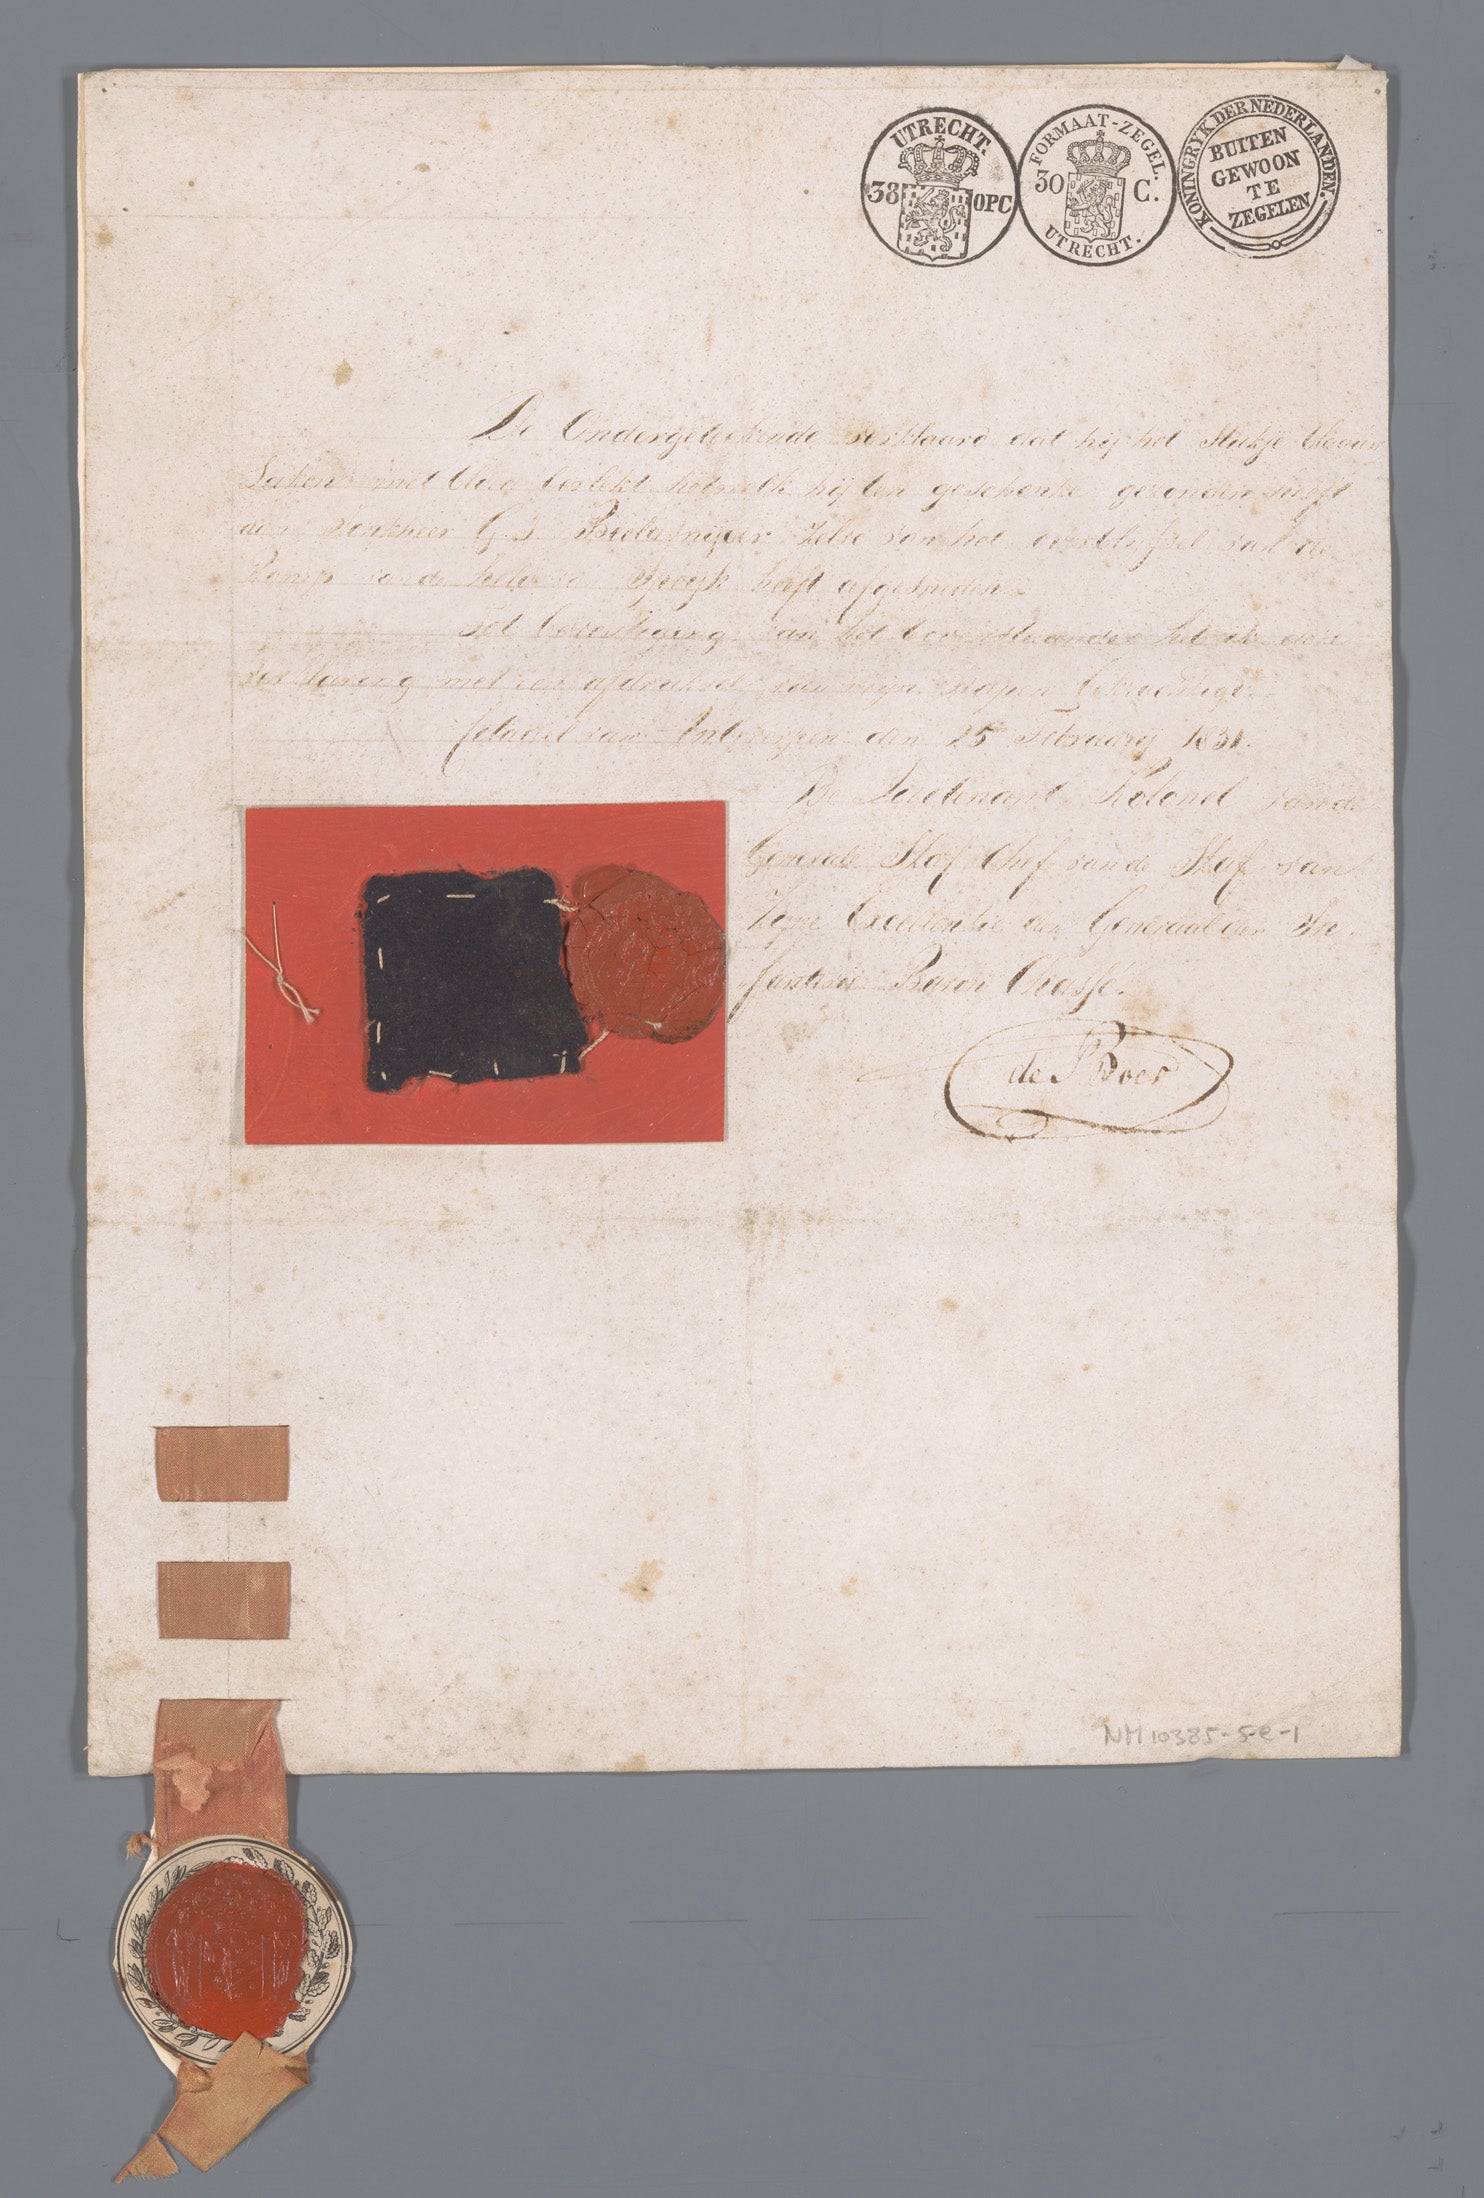 UTRECHT.
38 OPC
FORMAAT-ZEGEL.
30 C.
UTRECHT.
KONINGRYK DER NEDERLANDEN.
BUITEN
GEWOON
TE
ZEGELEN
De Ondergeteekende verklaard dat hij het Stukje blaauw
Laken met bloed bevlekt hetwelk hij ten geschenke gezonden heeft
aan Jonkheer G. J. zelve van het overblijfsel van de
Romp van de held van Speyk heeft afgesneden.
Tot bevestiging van het bovenstaande heb ik deze
verklaring met een afdruksel van mijn wapen bekrachtigd.
Citadel van Antwerpen den 25 Februarij 1831.
De Luitenant Kolonel van de
Generale Staf Chef van de Staf van
Zijne Excellentie den Generaal der In-
fanterie Baron Chassé.
de Boer
NM 10385-5-e-1